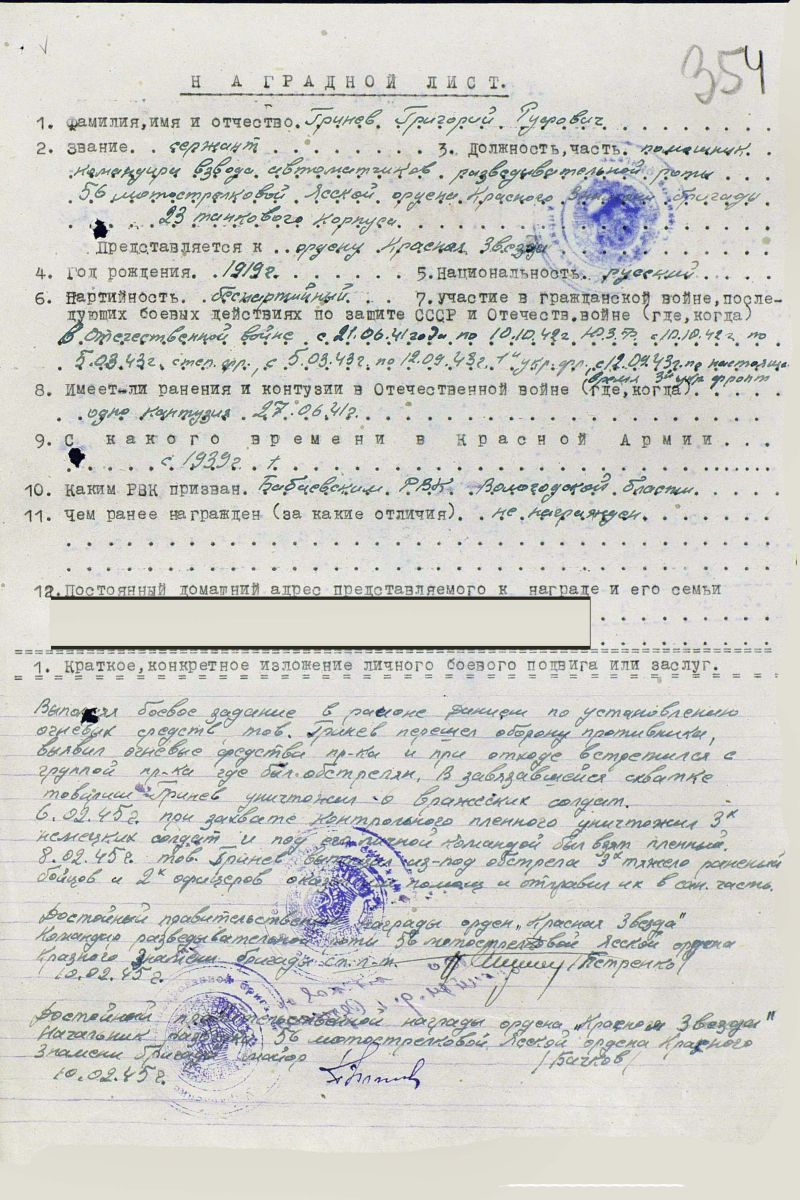 354
НАГРАДНОЙ ЛИСТ.
1. Фамилия,имя и отчество. Гринев Григорий Руфович
2. Звание. сержант 3. Должность,часть. помошник
командира взвода автоматчиков разведывательной роты
56 мотострелковой Ясской ордена Красного бригады
23 танкового корпуса
Представляется к ордену Красная Звезда
4. Год рождения. 1919г. 5.Национальность. русский
6. Партийность. беспартийный 7.участие в гражданской войне,после-
дующих боевых действиях по защите СССР и Отечеств.войне (где,когда)
В Отечественной войне с 21.06.41 года по 10.10.42г. Ю.З.Ф. с 10.10.42г. по
5.03.43г. степ.фр., с 5.03.43г. по 12.09.43г. 1й укр.фр., с 12.09.43г. по настояще
время 3й укр фронт
8. Имеет-ли ранения и контузии в Отечественной войне (где,когда)
одно контузия 27.06.41г.
9. С какого времени в Красной Армии
с 1939г.
10. Каким РВК призван. Бабаевским РВК Вологодской бласти
11. Чем ранее награжден (за какие отличия). не награжден
12.Постоянный домашний адрес представляемого к награде и его семьи
1. Краткое,конкретное изложение личного боевого подвига или заслуг.
боевое задание в районе по установлению
огневых средств тов. Гринев перешел оборону противника,
выявил огневые средства пр-ка и при отходе встретился с
группой пр-ка где был обстрелян. В завязавшейся схватке
товарищ Гринев уничтожил вражеских солдат.
6.02.45г. при захвате контрольного пленного уничтожил 3х
немецких солдат и под его личной командой был взят пленный.
8.02.45г. тов. Гринев из-под обстрела 3х тяжело раненый
бойцов и 2х офицеров и отправил их в сан.часть.
Достойный правительственной награды орден "Красная Звезда"
Командир разведывательной роты 56 мотострелковой Ясской ордена
Красного Знамени бригады ст. л-т. /Петренко/
10.02.45г.
Достойный правительственной награды ордена "Красная Звезда"
Начальник разведки 56 мотострелковой Ясской ордена Красного
Знамени бригады майор /Бачков/
10.02.45г.